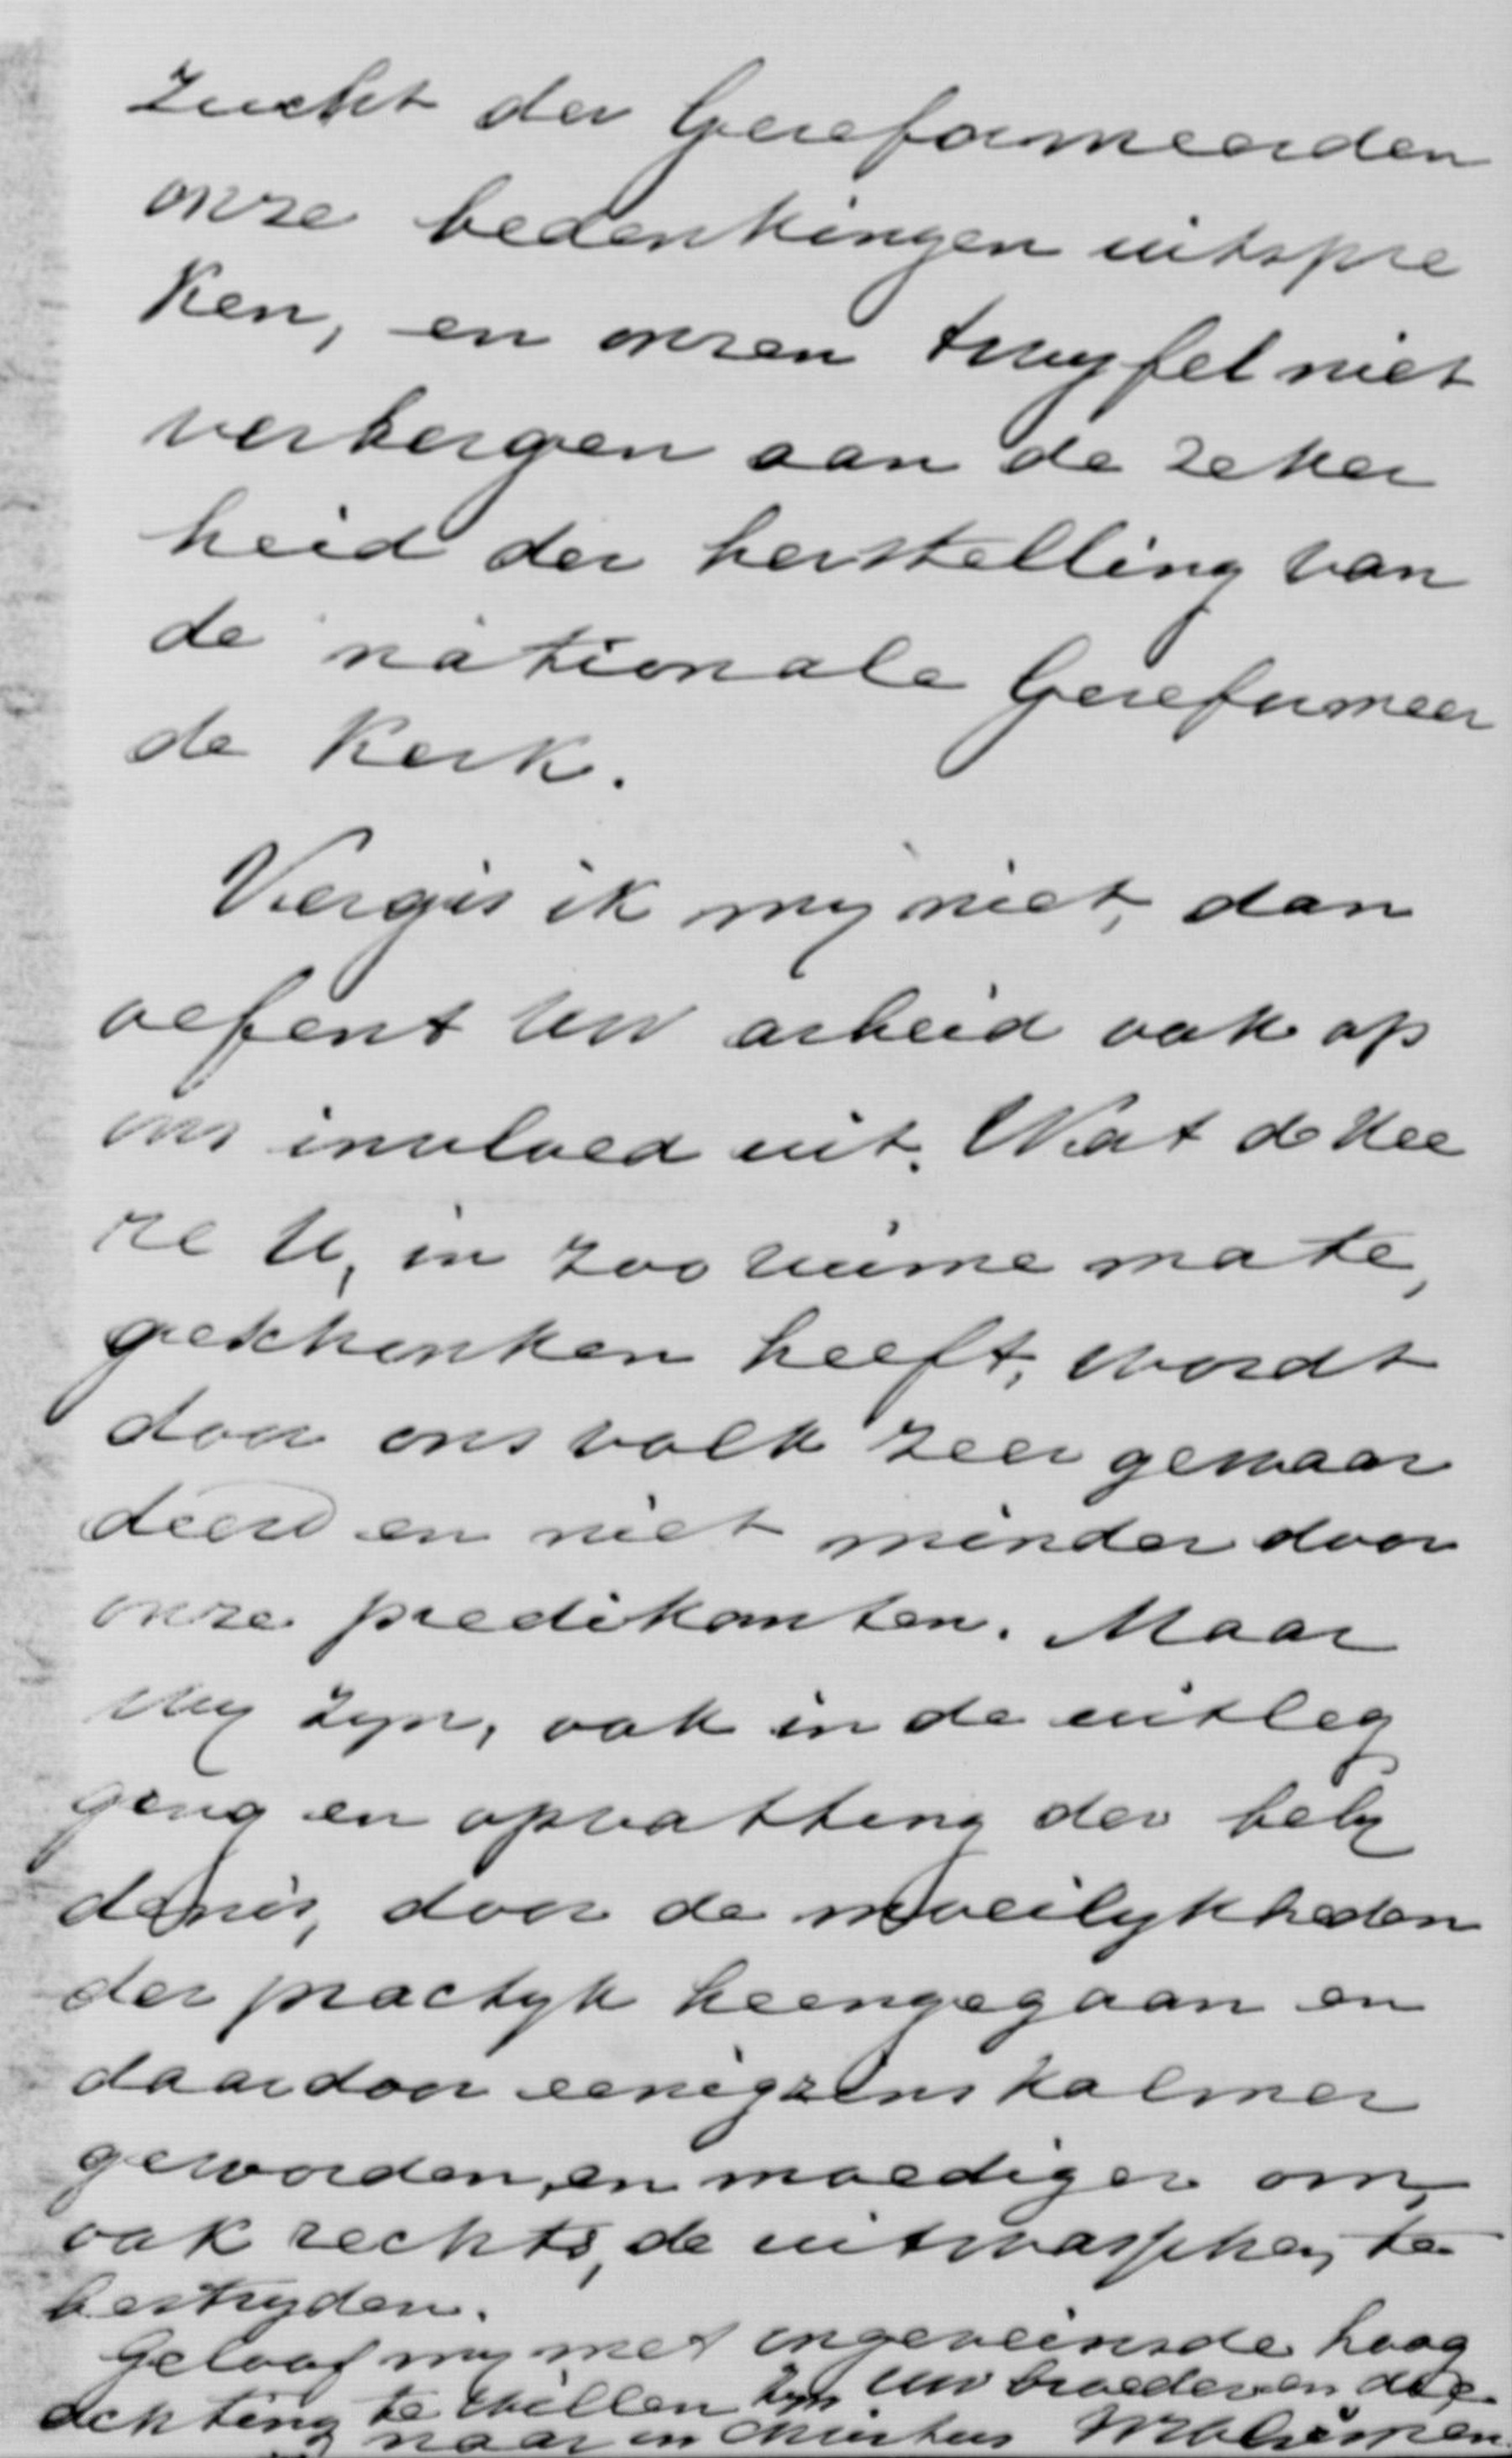 zucht der Gereformeerden
onze bedenkingen uitspre
ken, en onzen twyfel niet
verbergen aan de zeker
heid der herstelling van
de nationale Gereformeer
de Kerk.
Vergis ik my niet, dan
oefent Uw arbeid ook op
ons invloed uit. Wat de Hee
re U, in zoo ruime mate,
geschonken heeft, wordt
door ons volk zeer gewaar
deerd en niet minder door
onze predikanten. Maar
wy zyn, ook in de uitleg
ging en opvatting der bely
denis, door de moeilykheden
der practyk heengegaan en
daardoor eenigzins kalmer
geworden, en moediger om,
ook rechts, de uitwassen te
bestryden.
Geloof my met ongeveinsde hoog
achting te willen zyn Uw broeder en die
naar in Christus